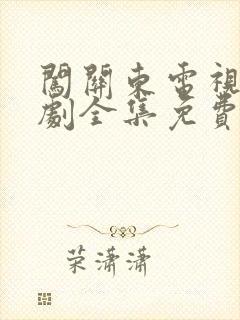 闖關東電視
劇全集免費
荣潇潇